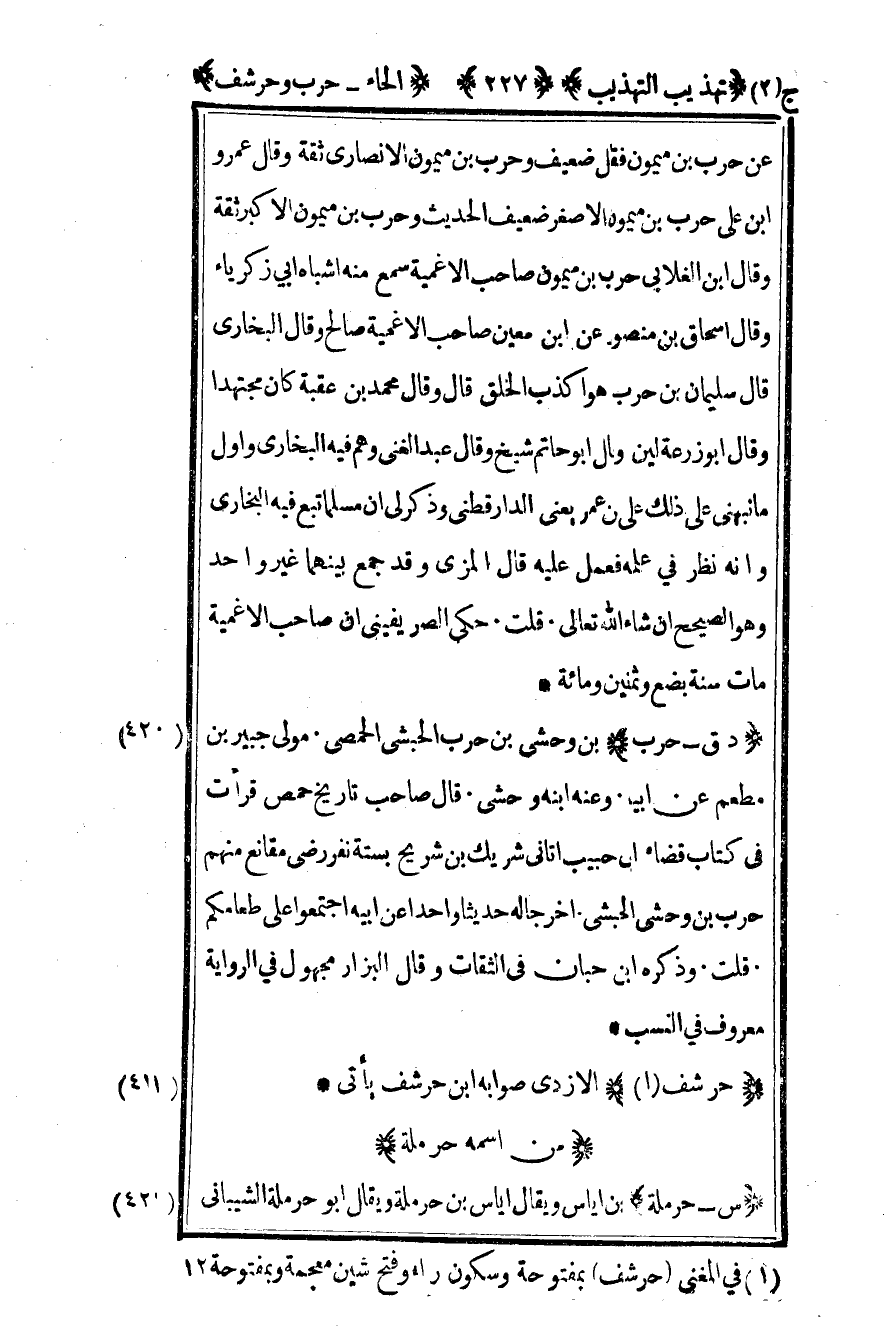 ج (٢) ﴿تهذيب التهذيب﴾ ﴿٢٢٧﴾ ﴿الحاء ـ حرب وحرشف﴾
عن حرب بن ميمون فقال ضعيف وحرب بن ميمون الانصارى ثقة وقال عمرو
ابن على حرب بن ميمون الاصغر ضعيف الحديث وحرب بن ميمون الاكبر ثقة
وقال ابن الغلابى حرب بن ميمون صاحب الاغمية سمع منه اشباه ابي زكرياء
وقال اسحاق بن منصور عن ابن معين صاحب الاغمية صالح وقال البخارى
قال سليمان بن حرب هو اكذب الخلق قال وقال محمد بن عقبة كان مجتهدا
وقال ابوزرعة لين وقال ابو حاتم شيخ وقال عبد الغنى وهم فيه البخارى واول
مانبهنى على ذلك على بن عمر يعنى الدارقطنى وذكر لى ان مسلما تبع فيه البخارى
وانه نظر في علمه فعمل عليه قال المزى وقد جمع بينهما غير واحد
وهو الصحيح ان شاء الله تعالى · قلت · حكى الصريفينى ان صاحب الاغمية
مات سنة بضع وثمنين ومائة *
﴿د ق ـ حرب﴾ بن وحشى بن حرب الحبشى الحمصى · مولى جبير بن (٤٢٠)
مطعم عن ابيه · وعنه ابنه وحشى · قال صاحب تاريخ حمص قرأت
فى كتاب قضاء ابى حبيب اتانى شريك بن شريح بستة نفر رضى مقانع منهم
حرب بن وحشى الحبشى · اخرجا له حديثا واحدا عن ابيه اجتمعوا على طعامكم
· قلت · وذكره ابن حبان فى الثقات وقال البزار مجهول في الرواية
معروف في النسب *
﴿حرشف (١)﴾ الازدى صوابه ابن حرشف يأتى * (٤١١)
﴿من اسمه حرملة﴾
﴿س ـ حرملة﴾ بن اياس ويقال اياس بن حرملة ويقال ابو حرملة الشيبانى (٤٢١)
(١) في المغنى (حرشف) بمفتوحة وسكون راء وفتح شين معجمة وبمفتوحة ١٢